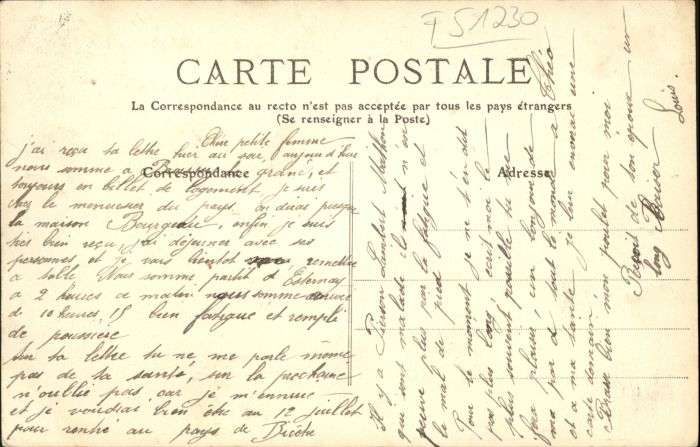 F 51230
CARTE POSTALE
La Correspondance au recto n'est pas acceptée par tous les pays étrangers
(Se renseigner à la Poste)
Correspondance
Adresse
Cher petite femme
j'ai reçu ta lettre hier au soir, aujourd'hui
nous somme a la grand, et
toujours en billet de logement, je suis
chez le menuisier du pays, on dirai presque
la maison Bourgeois, enfin je suis
très bien reçu, j'ai déjeuner avec ses
personnes et je vais bientot remettre
a table. Nous somme partit d'Esternay
a 2 heures du matin nous somme arrivé
de 10 heures 15 bien fatigué et remplé
de poussière
Sur ta lettre tu ne me parle même
pas de ta santé, sur la prochaine
n'oublie pas car je m'ennuie
et je voudrai bien être au 12 juillet
pour rentré au pays de Brèche
Il y a Pierson Lambert Mathieu
qui sont malade il n'en
peuve plus par la fatigue et
le mal de pied
Pour le moment je ne t'en dit
pas plus long, écrit moi le
plus souvent possible tu me
fera plaisir, un bonjour de
ma par a tout le monde a Théo
et a ma tante je leur enverai une
carte demain
Baise bien mon poulot pour moi
Reçoit de ton époux un
long Baiser
Louis.